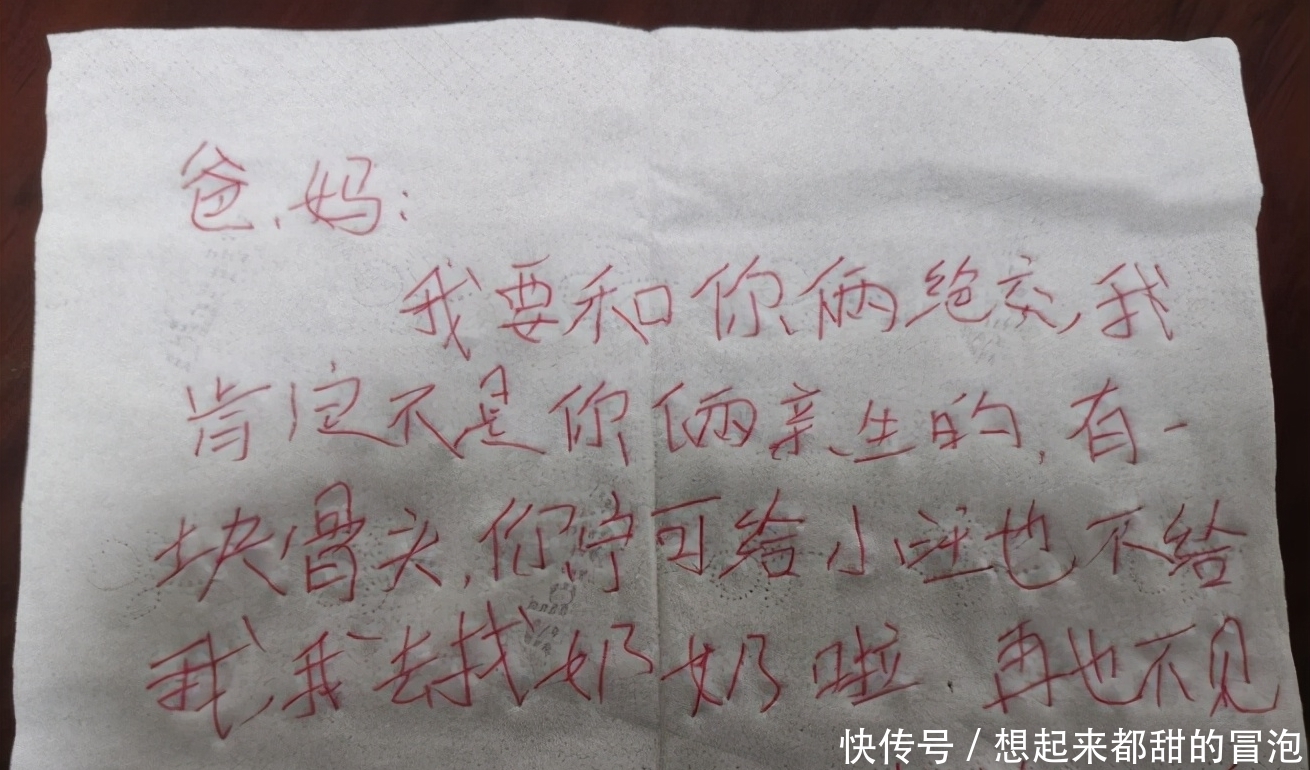 爸、妈:
我要和你俩绝交,我
肯定不是你俩亲生的,有一
块骨头,你宁可给小汪也不给
我,我去找奶奶啦.再也不见
快传号 / 想起来都甜的冒泡